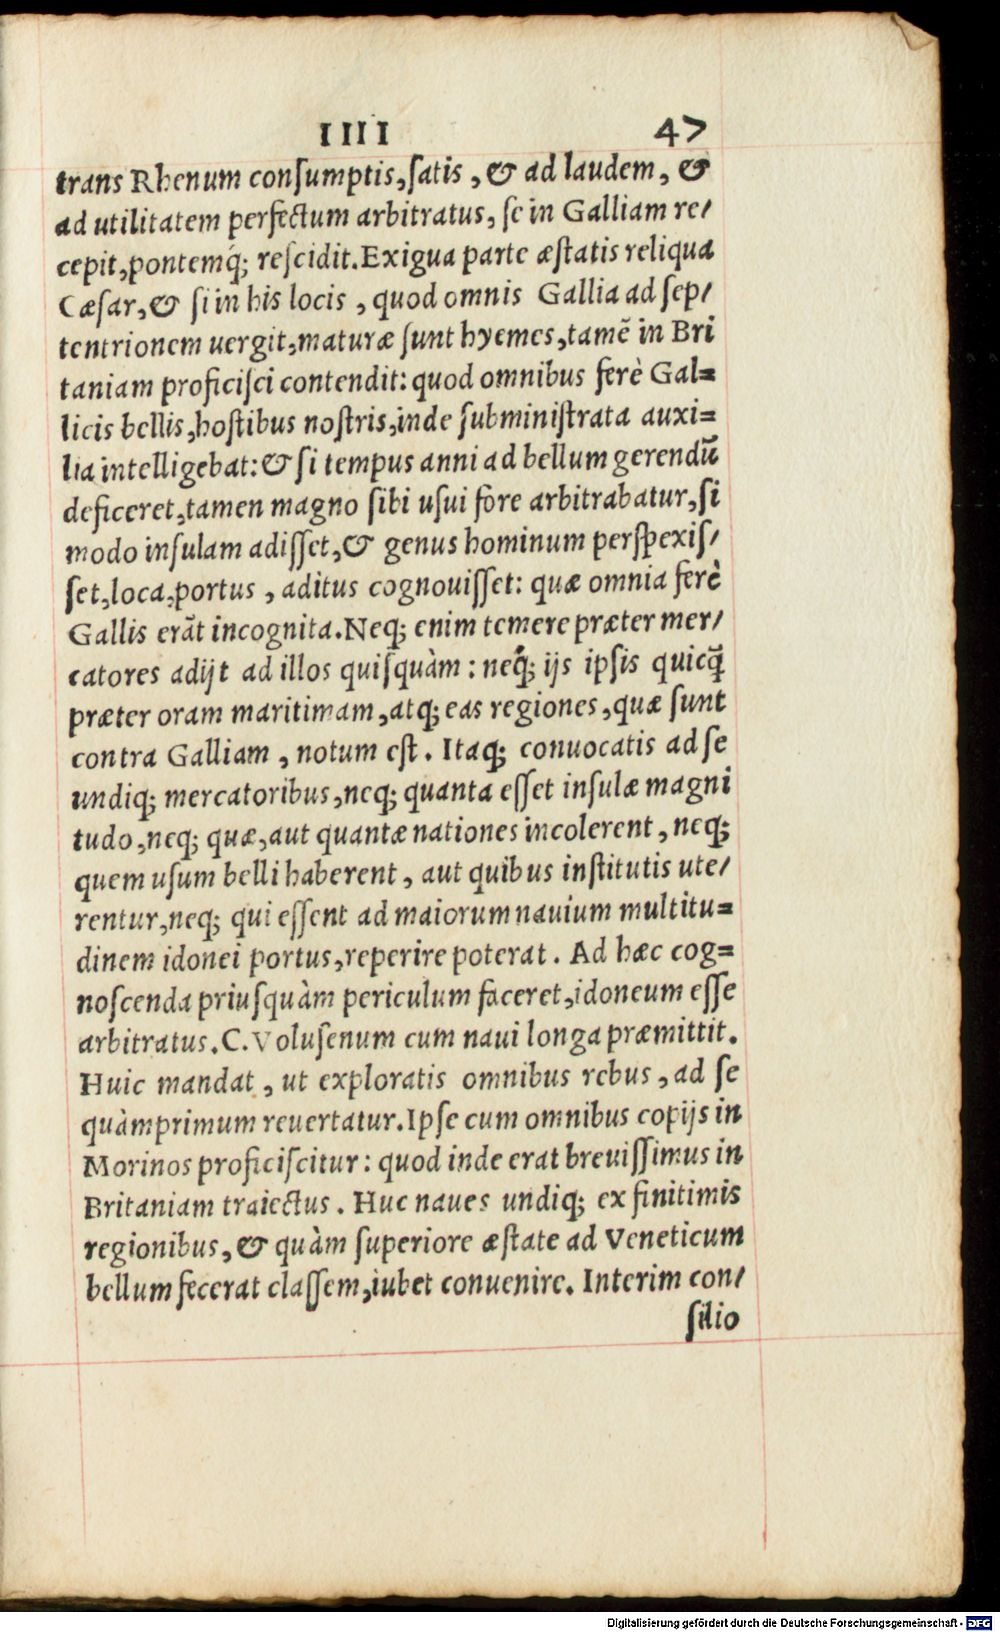 IIII 47
trans Rhenum conſumptis,ſatis , & ad laudem , &
ad utilitatem perfectum arbitratus, ſe in Galliam re/
cepit,pontemq́; reſcidit.Exigua parte æſtatis reliqua
Cæſar,& ſi in his locis , quod omnis Gallia ad ſep/
tentrionem uergit,maturæ ſunt hyemes,tamē in Bri
taniam proficiſci contendit: quod omnibus ferè Gal=
licis bellis,hoſtibus noſtris,inde ſubminiſtrata auxi=
lia intelligebat:& ſi tempus anni ad bellum gerendū
deficeret,tamen magno ſibi uſui fore arbitrabatur,ſi
modo inſulam adiſſet,& genus hominum perſpexiſ/
ſet,loca,portus , aditus cognouiſſet: quæ omnia ferè
Gallis erāt incognita.Neq; enim temere præter mer/
catores adijt ad illos quiſquàm : neq́; ijs ipſis quicq̄
præter oram maritimam,atq; eas regiones,quæ ſunt
contra Galliam , notum eſt . Itaq; conuocatis ad ſe
undiq; mercatoribus,neq; quanta eſſet inſulæ magni
tudo,neq; quæ,aut quantæ nationes incolerent, neq;
quem uſum belli haberent , aut quibus inſtitutis ute/
rentur,neq; qui eſſent ad maiorum nauium multitu=
dinem idonei portus,reperire poterat . Ad hæc cog=
noſcenda priuſquàm periculum faceret,idoneum eſſe
arbitratus.C.Voluſenum cum naui longa præmittit.
Huic mandat , ut exploratis omnibus rebus, ad ſe
quàmprimum reuertatur.Ipſe cum omnibus copijs in
Morinos proficiſcitur: quod inde erat breuiſſimus in
Britaniam traiectus . Huc naues undiq; ex finitimis
regionibus, & quàm ſuperiore æſtate ad Veneticum
bellum fecerat claſſem,iubet conuenire. Interim con/
ſilio
Digitalisierung gefördert durch die Deutsche Forschungsgemeinschaft - DFG